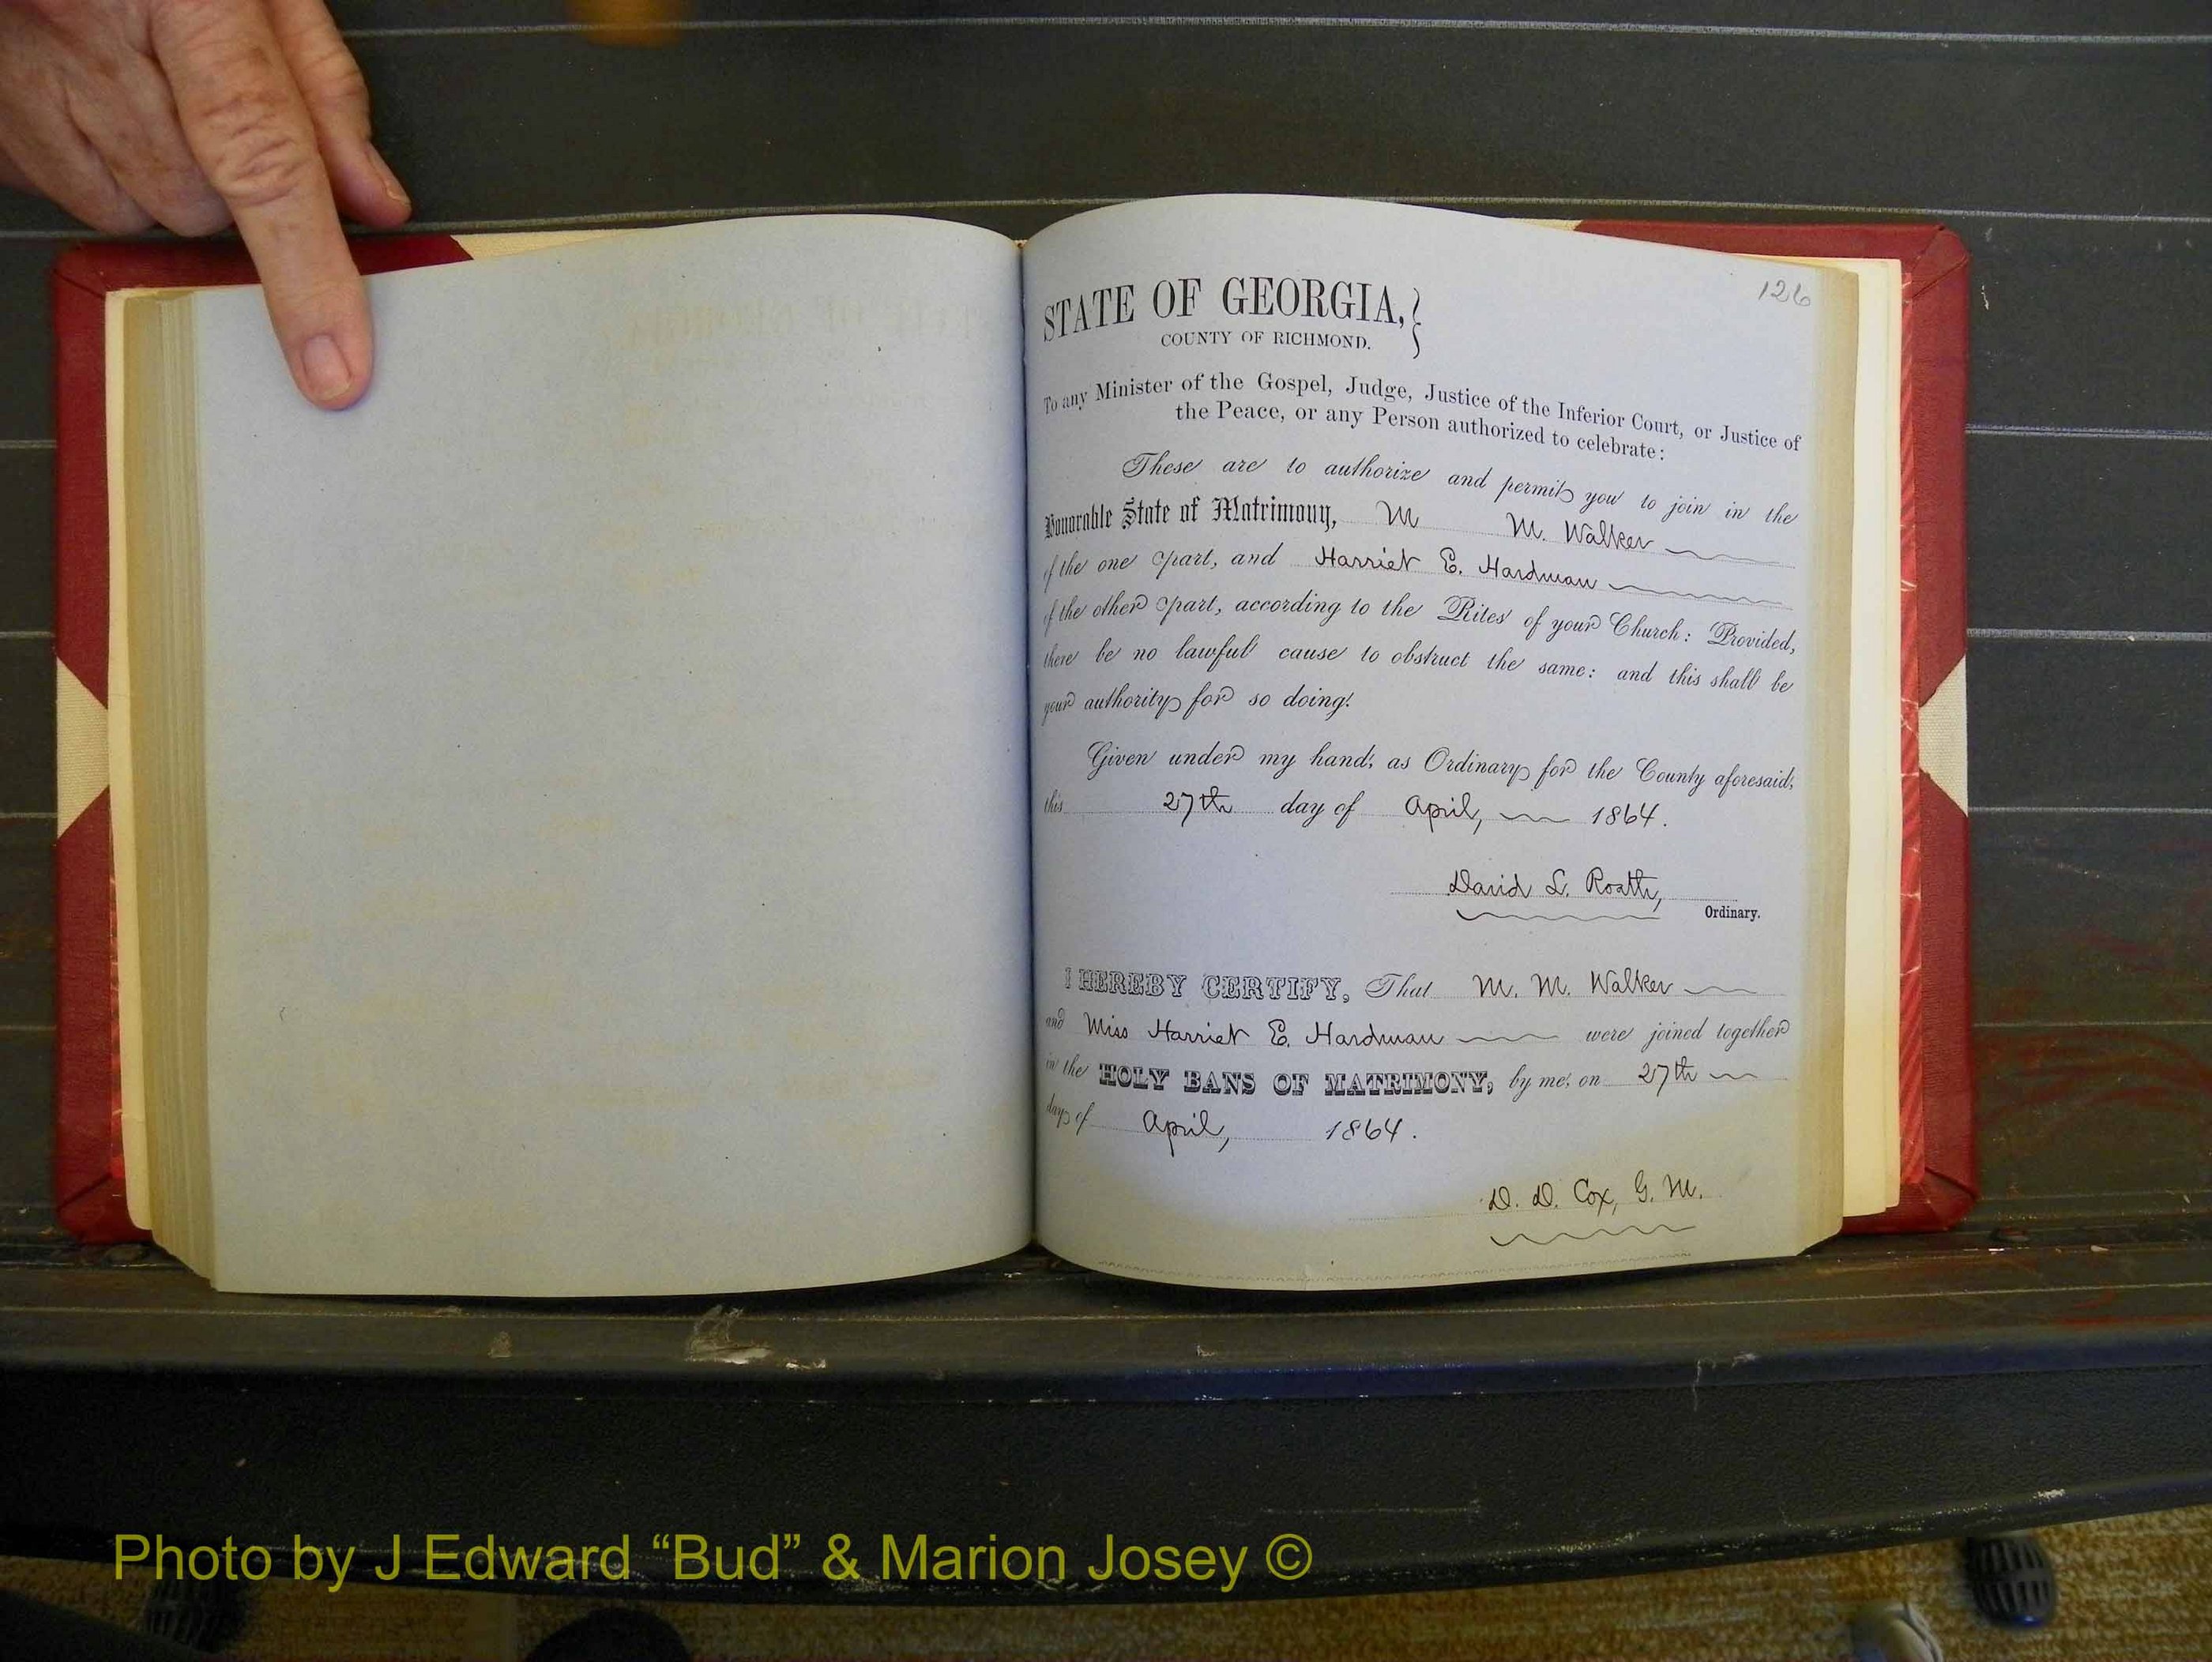 126
STATE OF GEORGIA,
COUNTY OF RICHMOND.
To any Minister of the Gospel, Judge, Justice of the Inferior Court, or Justice of
the Peace, or any Person authorized to celebrate:
These are to authorize and permit you to join in the
Honorable State of Matrimony, M M. Walker
of the one part, and Harriet E. Hardman
of the other part, according to the Rites of your Church: Provided,
there be no lawful cause to obstruct the same: and this shall be
your authority for so doing.
Given under my hand, as Ordinary for the County aforesaid,
this 27th day of April, 1864.
David L. Roath,
Ordinary.
I HEREBY CERTIFY, That M. M. Walker
and Miss Harriet E. Hardman were joined together
in the HOLY BANS OF MATRIMONY, by me, on 27th
day of April, 1864.
D. D. Cox, G. M.
Photo by J Edward “Bud” & Marion Josey ©